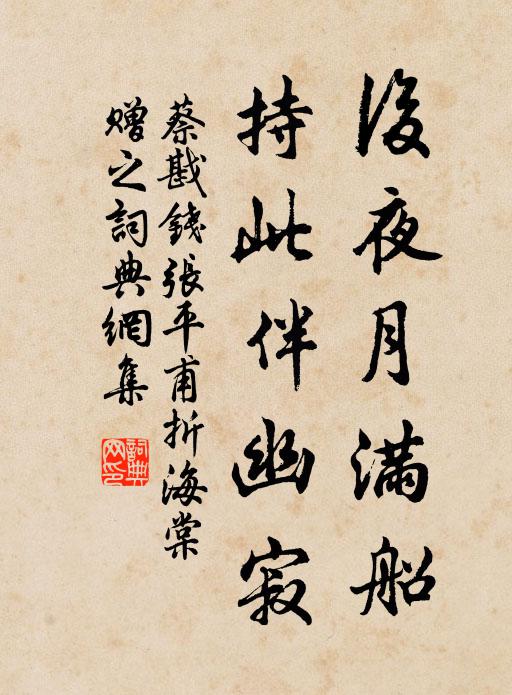 後夜月滿船
持此伴幽寂
蔡戡錢張平甫折海棠
贈之詞典網集
詞典
网印